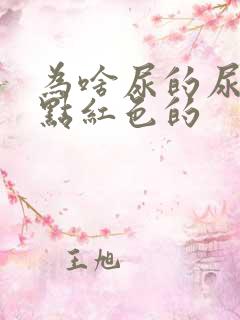 為啥尿的尿
點紅色的
王旭